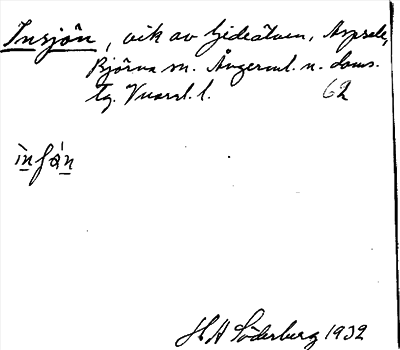 Insjön, vik av Gideälven, Aspsele,
Björna sn. Ångerml. n. doms.
tg. Vnorrl. l. 62
ìnʃǿn
H A Söderberg 1932